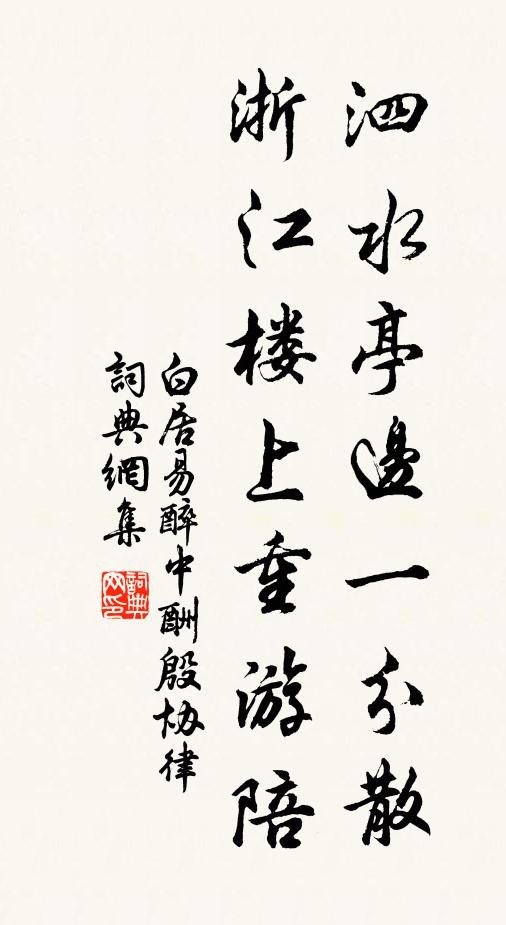 泗水亭邊一分散
浙江楼上重游陪
白居易醉中酬殷协律
詞典網集
詞典网印